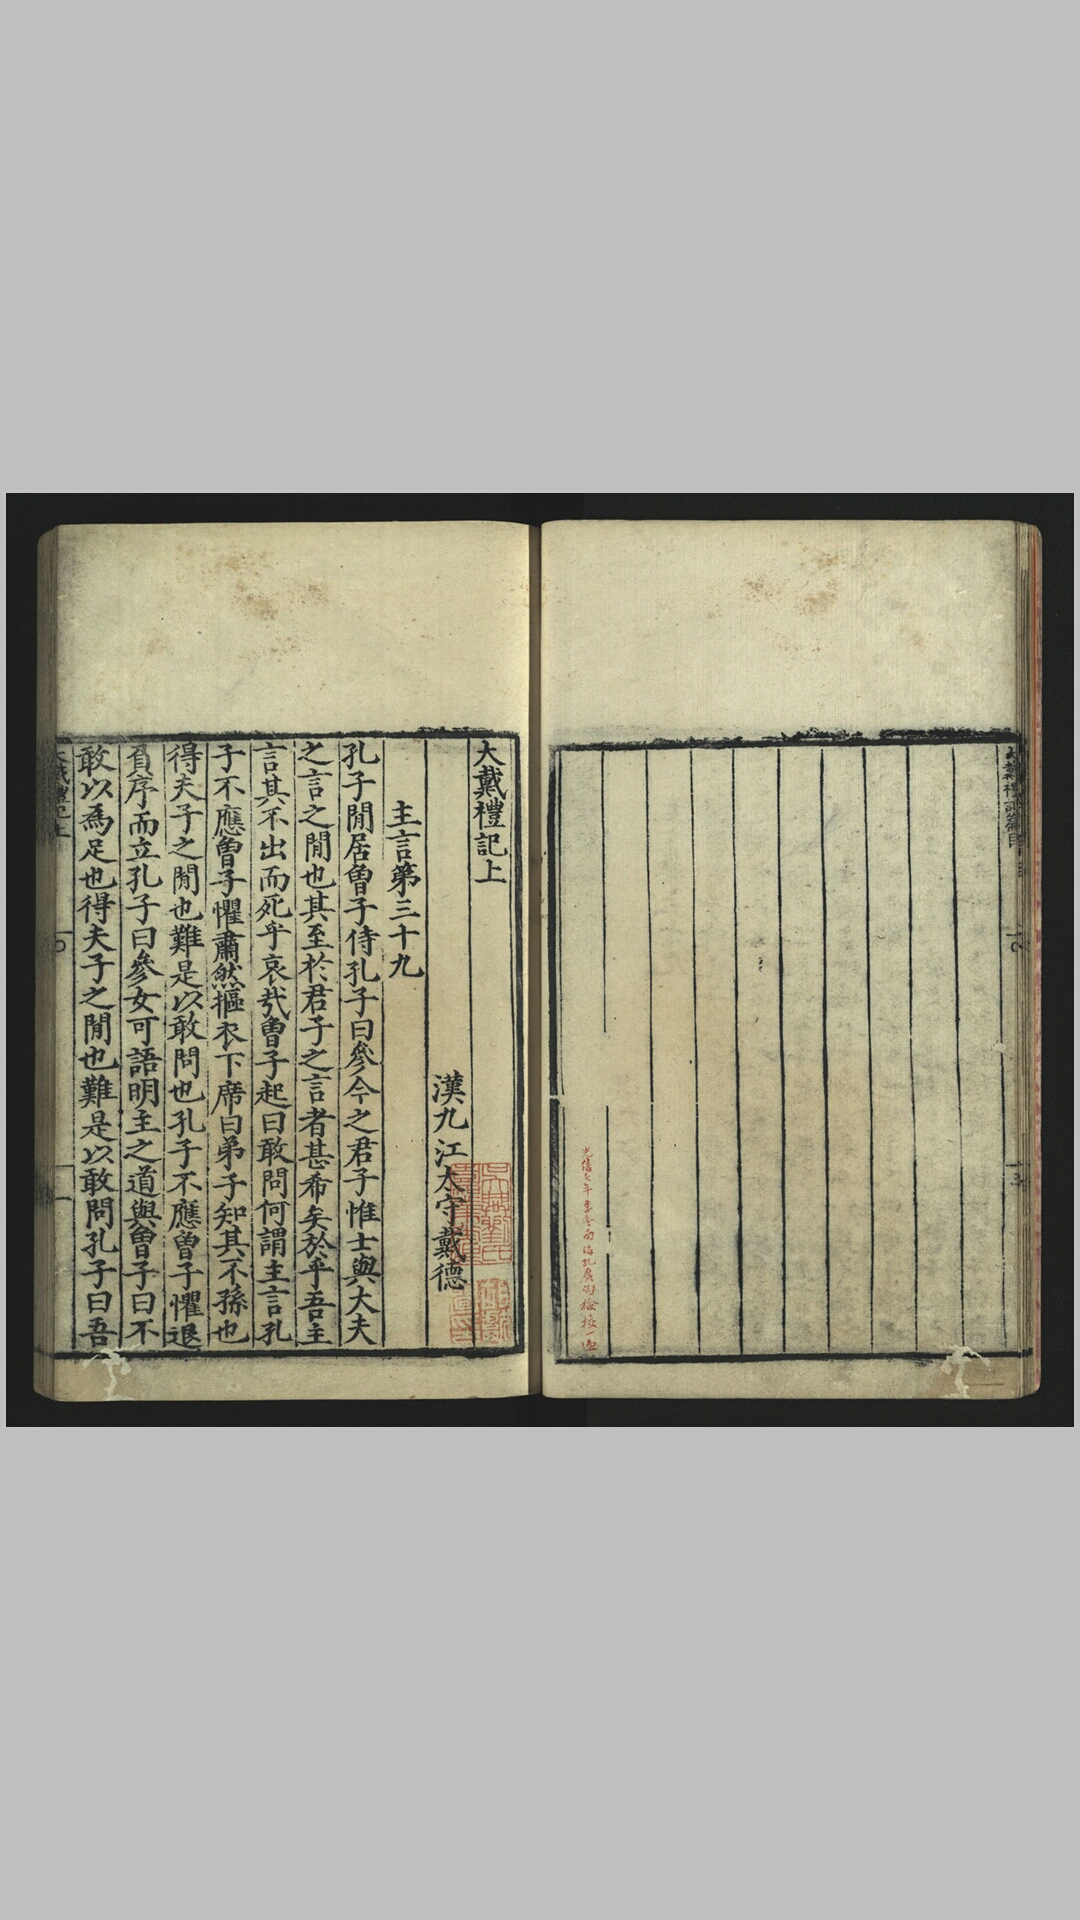 大戴禮記篇目
光緒七年
大戴禮記上
漢九江太守戴德
主言第三十九
孔子閒居曾子侍孔子曰參今之君子惟士與大夫
之言之閒也其至於君子之言者甚希矣於乎吾主
言其不出而死乎哀㢤曾子起曰敢問何謂主言孔
子不應曾子懼肅然摳衣下席曰弟子知其不孫也
得夫子之閒也難是以敢問也孔子不應曾子懼退
負序而立孔子曰參女可語明主之道與曾子曰不
敢以爲足也得夫子之閒也難是以敢問孔子曰吾
大戴禮記上